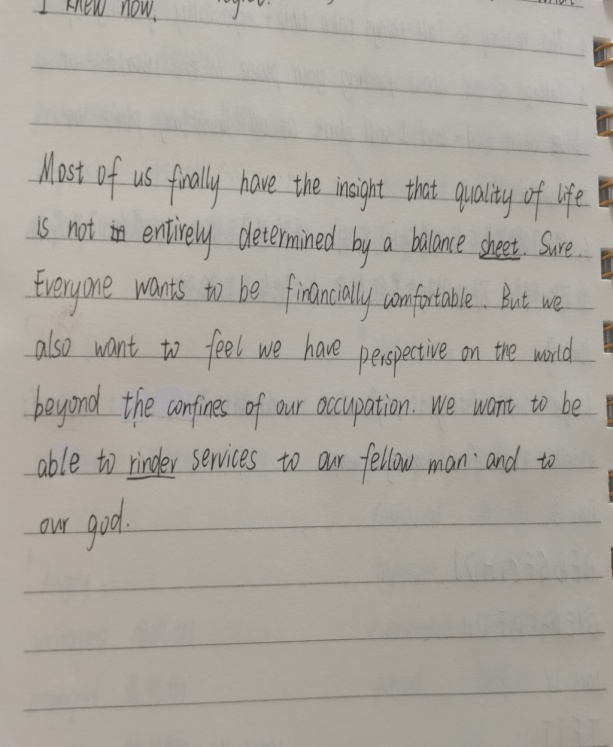 I knew now.
Most of us finally have the insight that quality of life
is not entirely determined by a balance sheet. Sure.
Everyone wants to be financially comfortable. But we
also want to feel we have perspective on the world
beyond the confines of our occupation. We want to be
able to rinder services to our fellow man. and to
our god.